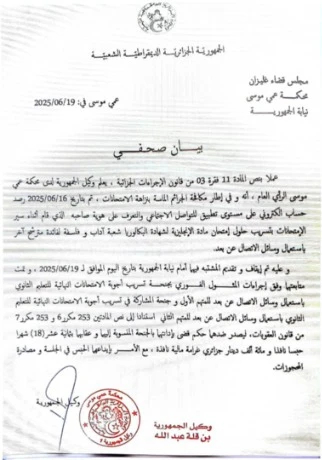 الجمهورية الجزائرية الديمقراطية الشعبية
مجلس قضاء غليزان
محكمة عمي موسى
نيابة الجمهورية
عمي موسى في: 2025/06/19
بيان صحفي
عملا بنص المادة 11 فقرة 03 من قانون الإجراءات الجزائية ، يعلم وكيل الجمهورية لدى محكمة عمي
موسى الرأي العام ، أنه و في إطار مكافحة الجرائم الماسة بنزاهة الامتحانات ، تم بتاريخ 2025/06/16 رصد
حساب الكتروني على مستوى تطبيق للتواصل الاجتماعي والتعرف على هوية صاحبه، الذي قام أثناء سير
الإمتحانات بتسريب حلول إمتحان مادة الإنجليزية لشهادة البكالوريا شعبة آداب و فلسفة لفائدة مترشح آخر
باستعمال وسائل الاتصال عن بعد.
و عليه تم توقيف و تقديم المشتبه فيهما أمام نيابة الجمهورية بتاريخ اليوم الموافق لـ 2025/06/19 ، و تمت
متابعتهما وفق إجراءات المثول الفوري بجنحة تسريب أجوبة الامتحانات النهائية للتعليم الثانوي
باستعمال وسائل الاتصال عن بعد للمتهم الأول و جنحة المشاركة في تسريب أجوبة الامتحانات النهائية للتعليم
الثانوي باستعمال وسائل الاتصال عن بعد للمتهم الثاني استنادا إلى نص المادتين 253 مكرر6 و 253 مكرر7
من قانون العقوبات، ليصدر ضدهما حكم قضى بإدانتهما بالجنحة المنسوبة إليهما و عقابهما بثمانية عشر (18) شهرا
حبسا نافذا و مائة ألف دينار جزائري غرامة مالية نافذة ، مع الأمر بإيداعهما الحبس في الجلسة و مصادرة
المحجوزات.
وكيل الجمهورية
وكيل الجمهورية
بن قلة عبد الله